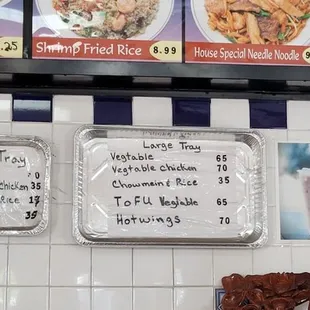 .25
Shrimp Fried Rice 8.99
House Special Needle Noodle 9
Tray
0
chicken 35
Rice 17
35
Large Tray
Vegtable 65
Vegtable chicken 70
Chowmein & Rice 35
ToFU Vegtable 65
Hotwings 70